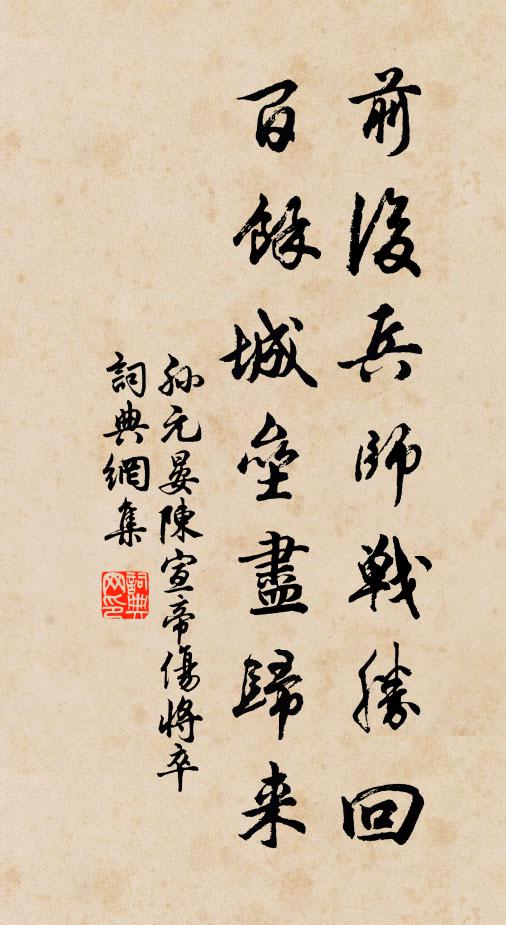 前後兵師戰勝回
百餘城壘盡歸来
孙元晏陳宣帝傷將卒
詞典網集
詞典
网印